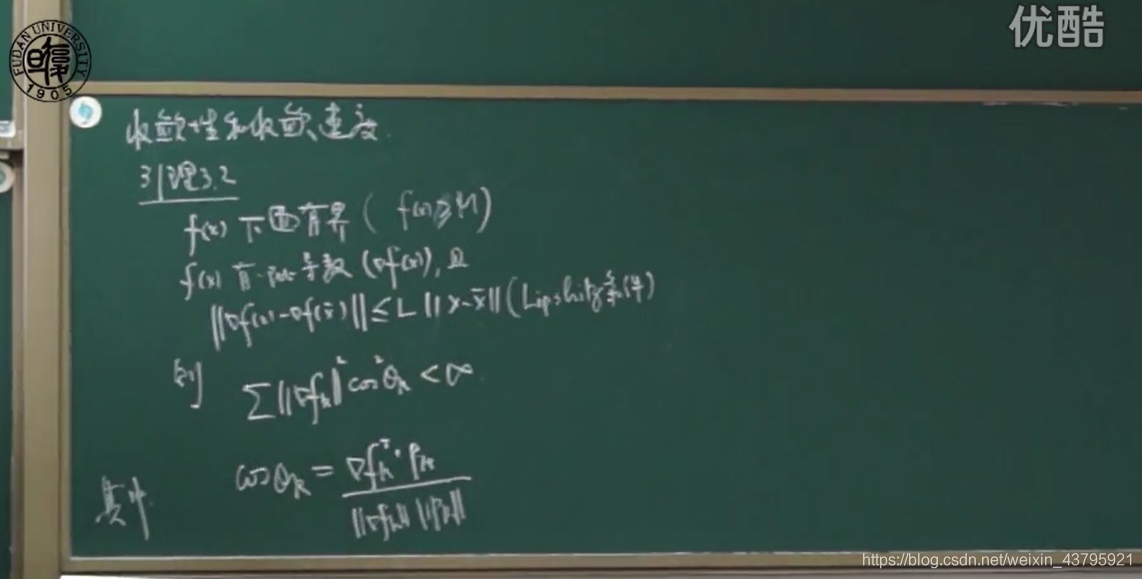 FUDAN UNIVERSITY
1905
优酷
收敛性和收敛速度
引理3.2
f(x) 下面有界 ( f(x)≥M)
f(x) 有一阶导数 (∇f(x)), 且
||∇f(x)-∇f(x̄)|| ≤ L ||x-x̄|| (Lipshitz条件)
则 ∑||∇fₖ||²cos²θₖ < ∞
其中 cosθₖ = ∇fₖᵀ·Pₖ / ||∇fₖ|| ||Pₖ||
https://blog.csdn.net/weixin_43795921